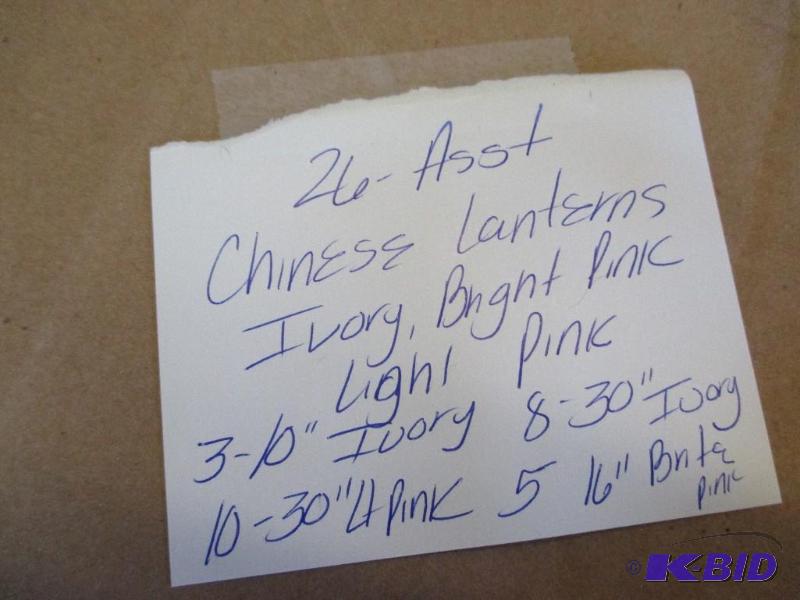 26- Asst
Chinese Lanterns
Ivory, Bright Pink
Light Pink
3-10" Ivory 8-30" Ivory
10-30" Lt Pink 5 16" Brite
Pink
© K-BID